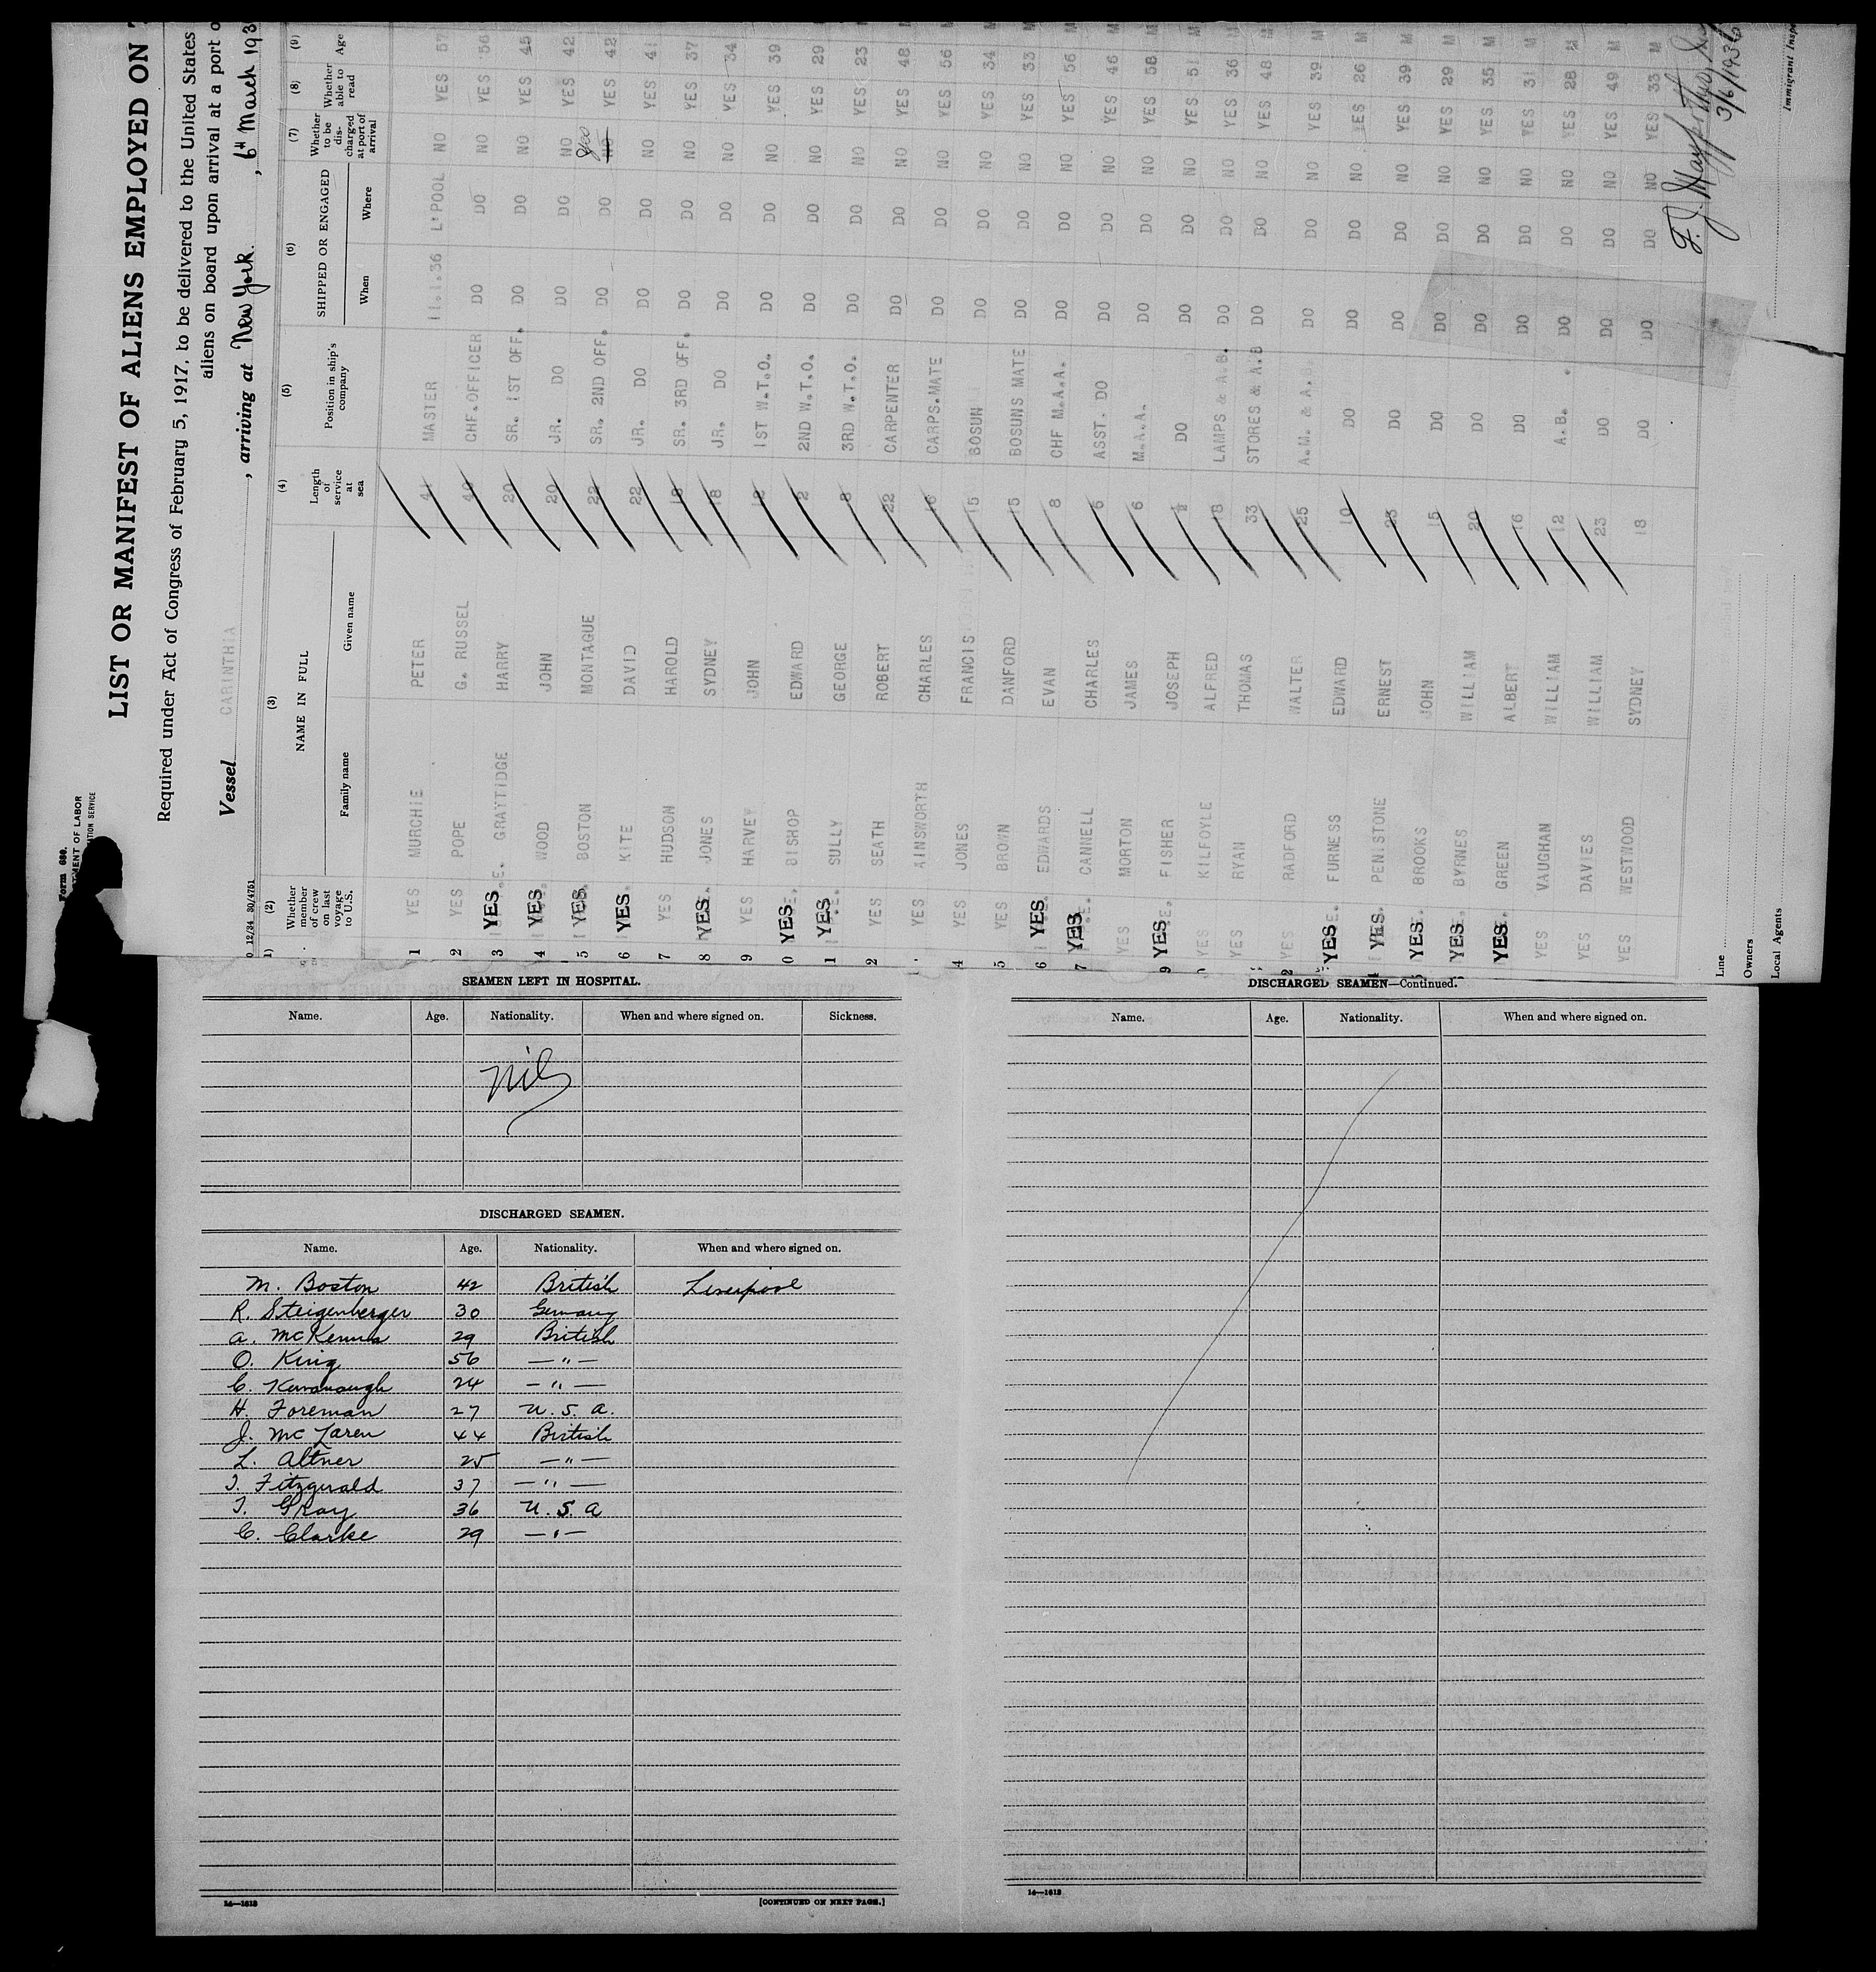 Form 680.
LIST OR MANIFEST OF ALIENS EMPLOYED ON
Required under Act of Congress of February 5, 1917, to be delivered to the United States
aliens on board upon arrival at a port
Vessel CARINTHIA, arriving at New York., 6th March 193
12/34 30/4751
(2) Whether member of crew on last voyage to U.S. (3) NAME IN FULL Family name Given name (4) Length of service at sea (5) Position in ship's company (6) SHIPPED OR ENGAGED When Where (7) Whether to be discharged at port of arrival (8) Whether able to read (9) Age
1 YES MURCHIE PETER 41 MASTER 11.1.36 L'POOL NO YES 57
2 YES POPE G. RUSSEL 40 CHF.OFFICER DO DO NO YES 56
3 YES GRAYTIDGE HARRY 20 SR. 1ST OFF. DO DO NO YES 45
4 YES WOOD JOHN 20 JR. DO DO DO NO YES 42
5 YES. BOSTON MONTAGUE SR. 2ND OFF. DO DO NO YES 42
6 YES. KITE DAVID 22 JR. DO DO DO NO YES 41
7 YES HUDSON HAROLD 18 SR. 3RD OFF. DO DO NO YES 37
8 YES. JONES SYDNEY 18 JR. DO DO DO NO YES 34
9 YES HARVEY JOHN 1ST W.T.O. DO DO NO YES 39
0 YES BISHOP EDWARD 2ND W.T.O. DO DO NO YES 29
1 YES SULLY GEORGE 3RD W.T.O. DO DO NO YES 23
2 YES SEATH ROBERT 22 CARPENTER DO DO NO YES 48
YES AINSWORTH CHARLES 16 CARPS.MATE DO DO NO YES 56
4 YES JONES FRANCIS 15 BOSUN DO DO NO YES 34
5 YES BROWN DANFORD 15 BOSUNS MATE DO DO NO YES 33
6 YES EDWARDS EVAN 8 CHF M.A.A. DO DO NO YES 56 M
7 YES. CANNELL CHARLES 6 ASST. DO DO DO NO YES 46 M
YES MORTON JAMES 6 M.A.A. DO DO NO YES 58 M
9 YES. FISHER JOSEPH ½ DO DO DO NO YES 51 M
YES KILFOYLE ALFRED 18 LAMPS & A.B. DO DO NO YES 36 M
YES RYAN THOMAS 33 STORES & A.B DO DO NO YES 48 M
2 YES RADFORD WALTER 25 A.M. & A.B. DO DO NO YES 39 M
YES. FURNESS EDWARD 10 DO DO DO NO YES 26 M
YES. PENISTONE ERNEST 23 DO DO DO NO YES 39 M
YES. BROOKS JOHN 15 DO DO DO NO YES 29 M
YES. BYRNES WILLIAM 20 DO DO DO NO YES 35 M
YES. GREEN ALBERT 16 DO DO DO NO YES 31 M
YES VAUGHAN WILLIAM 12 A.B. DO DO NO YES 28 M
YES DAVIES WILLIAM 23 DO DO DO NO YES 49 M
YES WESTWOOD SYDNEY 18 DO DO DO NO YES 33 M
3/6/1936
Line
Owners
Local Agents
Immigrant Insp
SEAMEN LEFT IN HOSPITAL.
Name. Age. Nationality. When and where signed on. Sickness.
Nil
DISCHARGED SEAMEN.
Name. Age. Nationality. When and where signed on.
M. Boston 42 British Liverpool
R. Steigenberger 30 Germany
A. McKenna 29 British
O. King 56 — " —
C. Kavanaugh 24 — " —
H. Foreman 27 U. S. A.
J. McLaren 44 British
L. Altner 25 — " —
T. Fitzgerald 37 — " —
T. Gray 36 U. S. A
C. Clarke 29 — " —
14—1613
[CONTINUED ON NEXT PAGE.]
DISCHARGED SEAMEN—Continued.
Name. Age. Nationality. When and where signed on.
14—1613